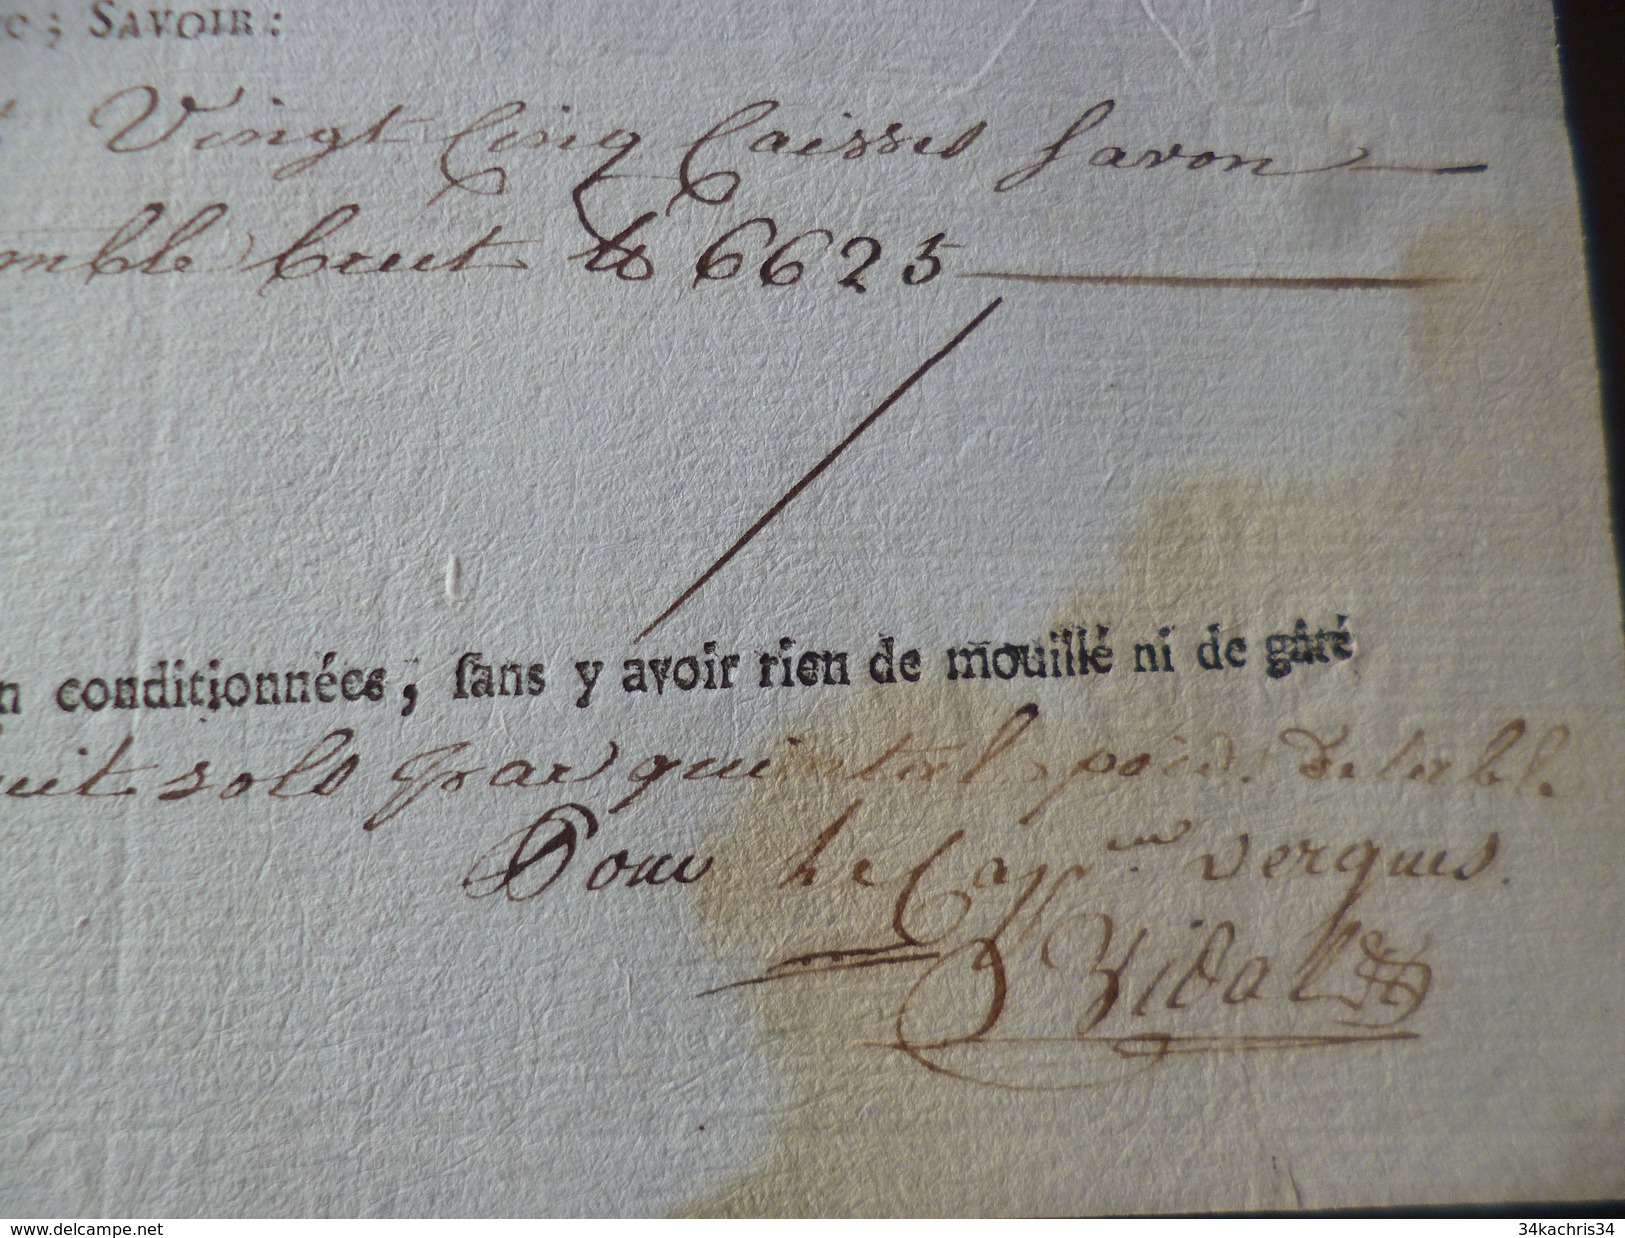 ; SAVOIR:
Vingt Cinq Caisses Savon
mble brut ℔ 6625
n conditionnées, ſans y avoir rien de mouillé ni de gâté
uit sols par quintal poids de table
Pour le Cap.ne Vergues.
Vidal
www.delcampe.net
34kachris34